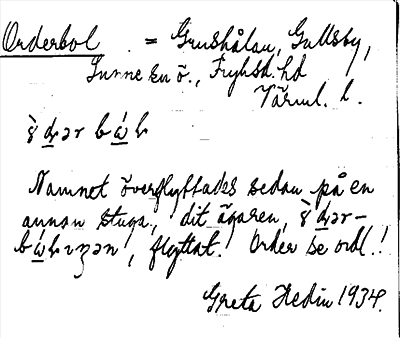 Orderbol = Grushålan, Gullsby,
Sunne sn ö., Fryksd. hd
Värml. l.
Namnet överflyttades sedan på en
annan stuga, dit ägaren,
flyttat. Order se ordl.!
Greta Hedin 1934.